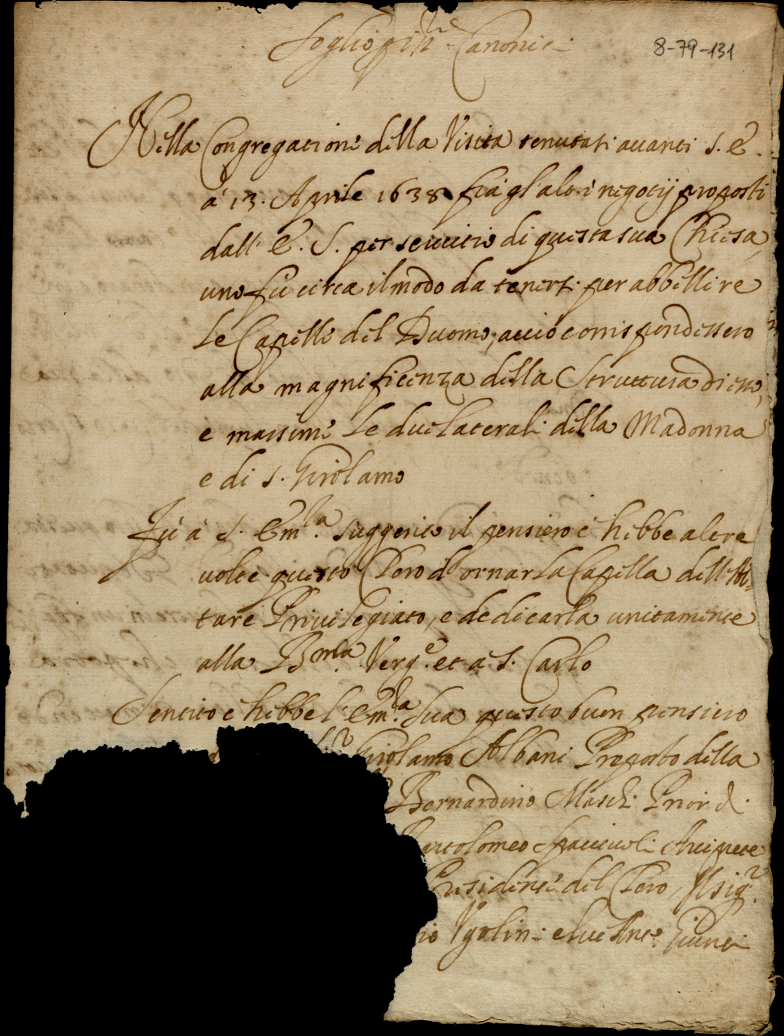 Foglio p. li Canonici
8-79-131
Nella Congregatione della Visita tenutasi avanti S. E.
a' 13. Aprile 1638 fra gl'altri negotij proposti
dall' E. S. per servitio di questa sua Chiesa,
uno fu circa il modo da tenersi per abbellire
le Capelle del Duomo, acciò corrispondessero
alla magnificenza della Struttura di esso,
e massime le due laterali della Madonna
e di S. Girolamo
Fu a S. Em.za suggerito il pensiero c'hebbe altre
volte questo Choro d'ornar la Capella dell'Al-
tare Privilegiato, e dedicarla unitamente
alla B.ma Verg.e et a S. Carlo
Sentito c'hebbe l'Em.za Sua questo buon pensiero
Girolamo Albani Proposto della
Bernardino Maschi Prior d.
Bartolomeo Arciprete
Presidenti del Choro, il sig.r
Ugolini e luc'Ant.o Giunti